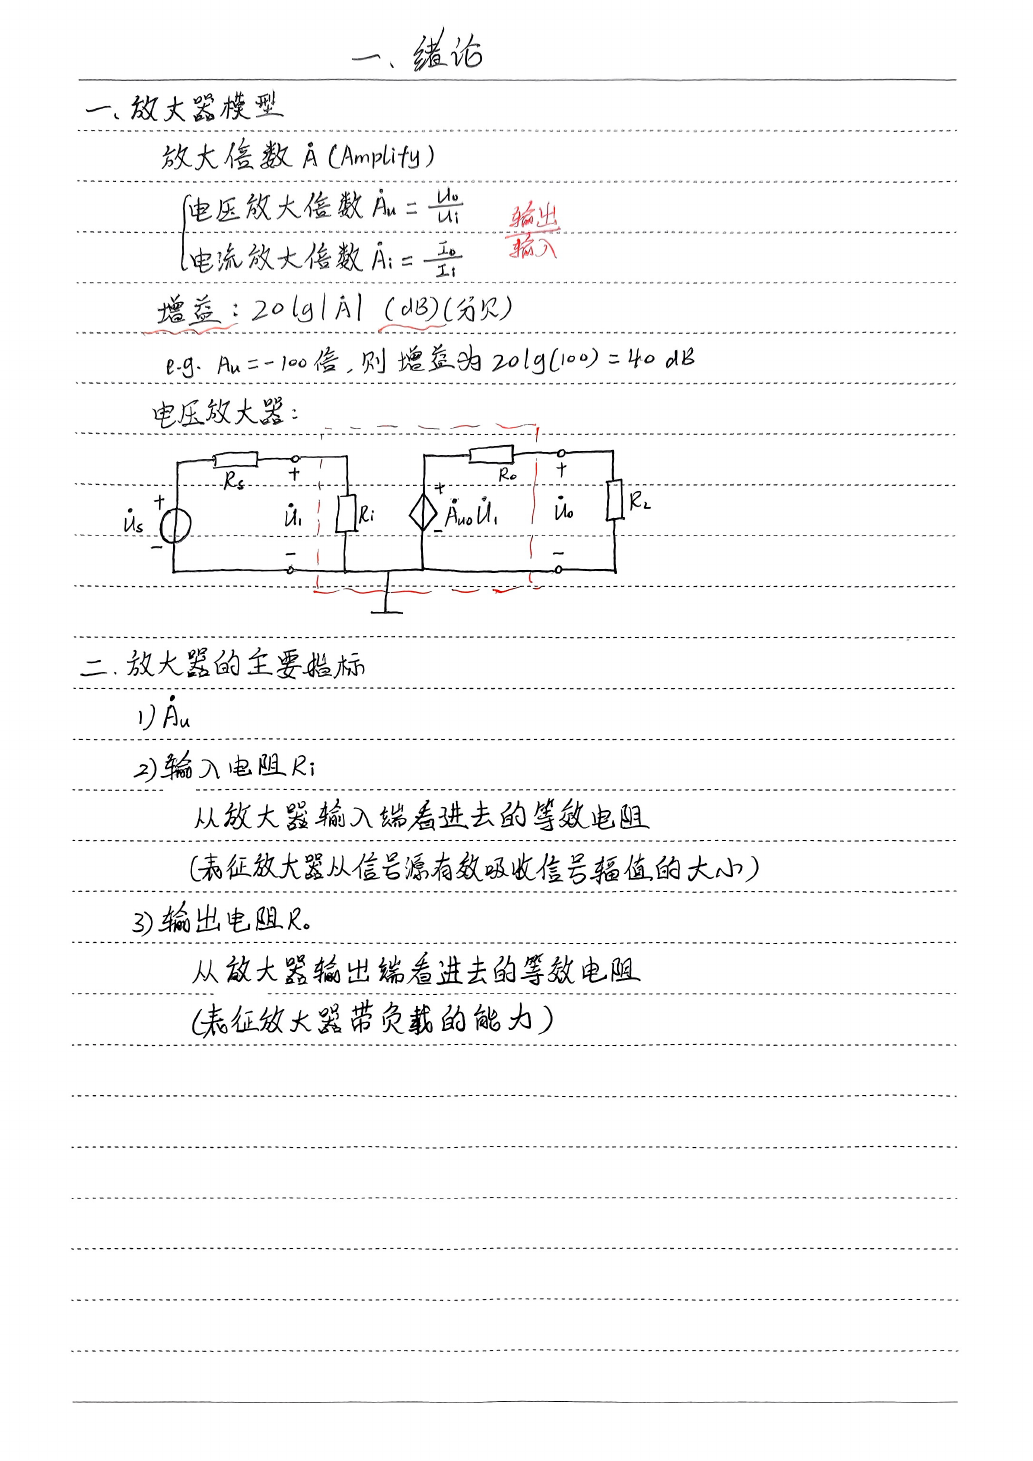 一、绪论
一、放大器模型
放大倍数 Ȧ (Amplify)
电压放大倍数 Ȧu = Uo/Ui
输出/输入
电流放大倍数 Ȧi = Io/Ii
增益：20lg|Ȧ| (dB)(分贝)
e.g. Au = -100倍，则增益为20lg(100) = 40 dB
电压放大器：
Rs + Ro +
U̇s + - U̇i Ri + - Ȧuo U̇i U̇o RL
- -
二.放大器的主要指标
1) Ȧu
2) 输入电阻 Ri
从放大器输入端看进去的等效电阻
(表征放大器从信号源有效吸收信号辐值的大小)
3) 输出电阻 Ro
从放大器输出端看进去的等效电阻
(表征放大器带负载的能力)